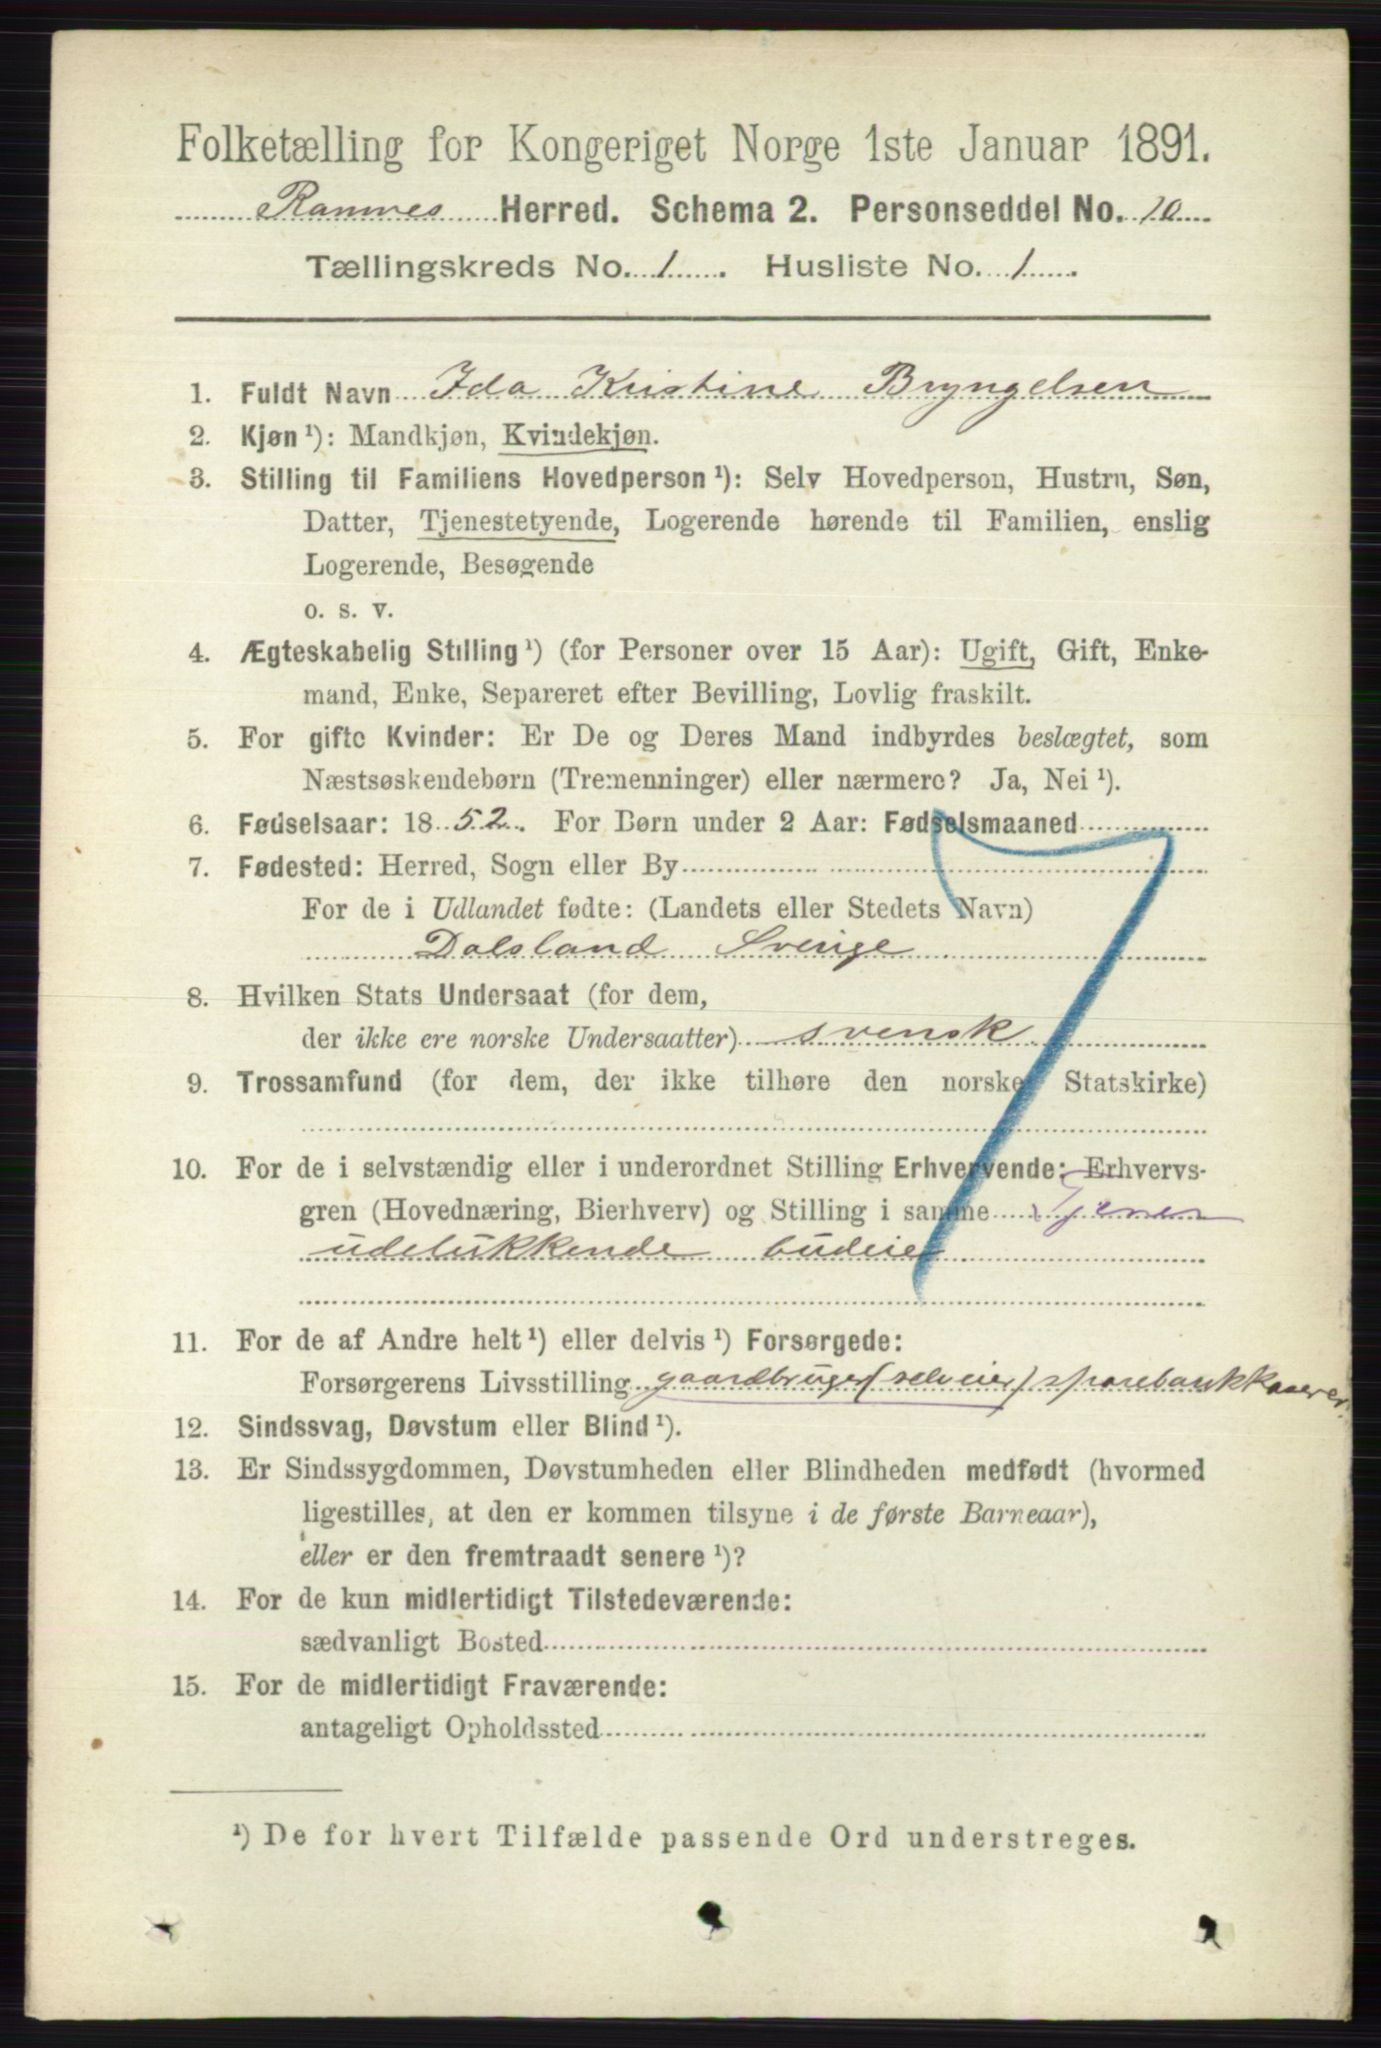 Folketælling for Kongeriget Norge 1ste Januar 1891.
Ramnes Herred. Schema 2. Personseddel No. 10
Tællingskreds No. 1. Husliste No. 1.
1. Fuldt Navn Ida Kristine Bryngelsen
2. Kjøn ¹): Mandkjøn, Kvindekjøn.
3. Stilling til Familiens Hovedperson ¹): Selv Hovedperson, Hustru, Søn,
Datter, Tjenestetyende, Logerende hørende til Familien, enslig
Logerende, Besøgende
o. s. v.
4. Ægteskabelig Stilling ¹) (for Personer over 15 Aar): Ugift, Gift, Enke-
mand, Enke, Separeret efter Bevilling, Lovlig fraskilt.
5. For gifte Kvinder: Er De og Deres Mand indbyrdes beslægtet, som
Næstsøskendebørn (Tremenninger) eller nærmere? Ja, Nei ¹).
6. Fødselsaar: 1852. For Børn under 2 Aar: Fødselsmaaned
7. Fødested: Herred, Sogn eller By
For de i Udlandet fødte: (Landets eller Stedets Navn)
Dalsland Sverige
8. Hvilken Stats Undersaat (for dem,
der ikke ere norske Undersaatter) svensk
9. Trossamfund (for dem, der ikke tilhøre den norske Statskirke)
10. For de i selvstændig eller i underordnet Stilling Erhvervende: Erhvervs-
gren (Hovednæring, Bierhverv) og Stilling i samme Tjener
udelukkende budeie
11. For de af Andre helt ¹) eller delvis ¹) Forsørgede:
Forsørgerens Livsstilling gaardbruger (selveier) sparebankkasserer.
12. Sindssvag, Døvstum eller Blind ¹).
13. Er Sindssygdommen, Døvstumheden eller Blindheden medfødt (hvormed
ligestilles, at den er kommen tilsyne i de første Barneaar),
eller er den fremtraadt senere ¹)?
14. For de kun midlertidigt Tilstedeværende:
sædvanligt Bosted
15. For de midlertidigt Fraværende:
antageligt Opholdssted
¹) De for hvert Tilfælde passende Ord understreges.